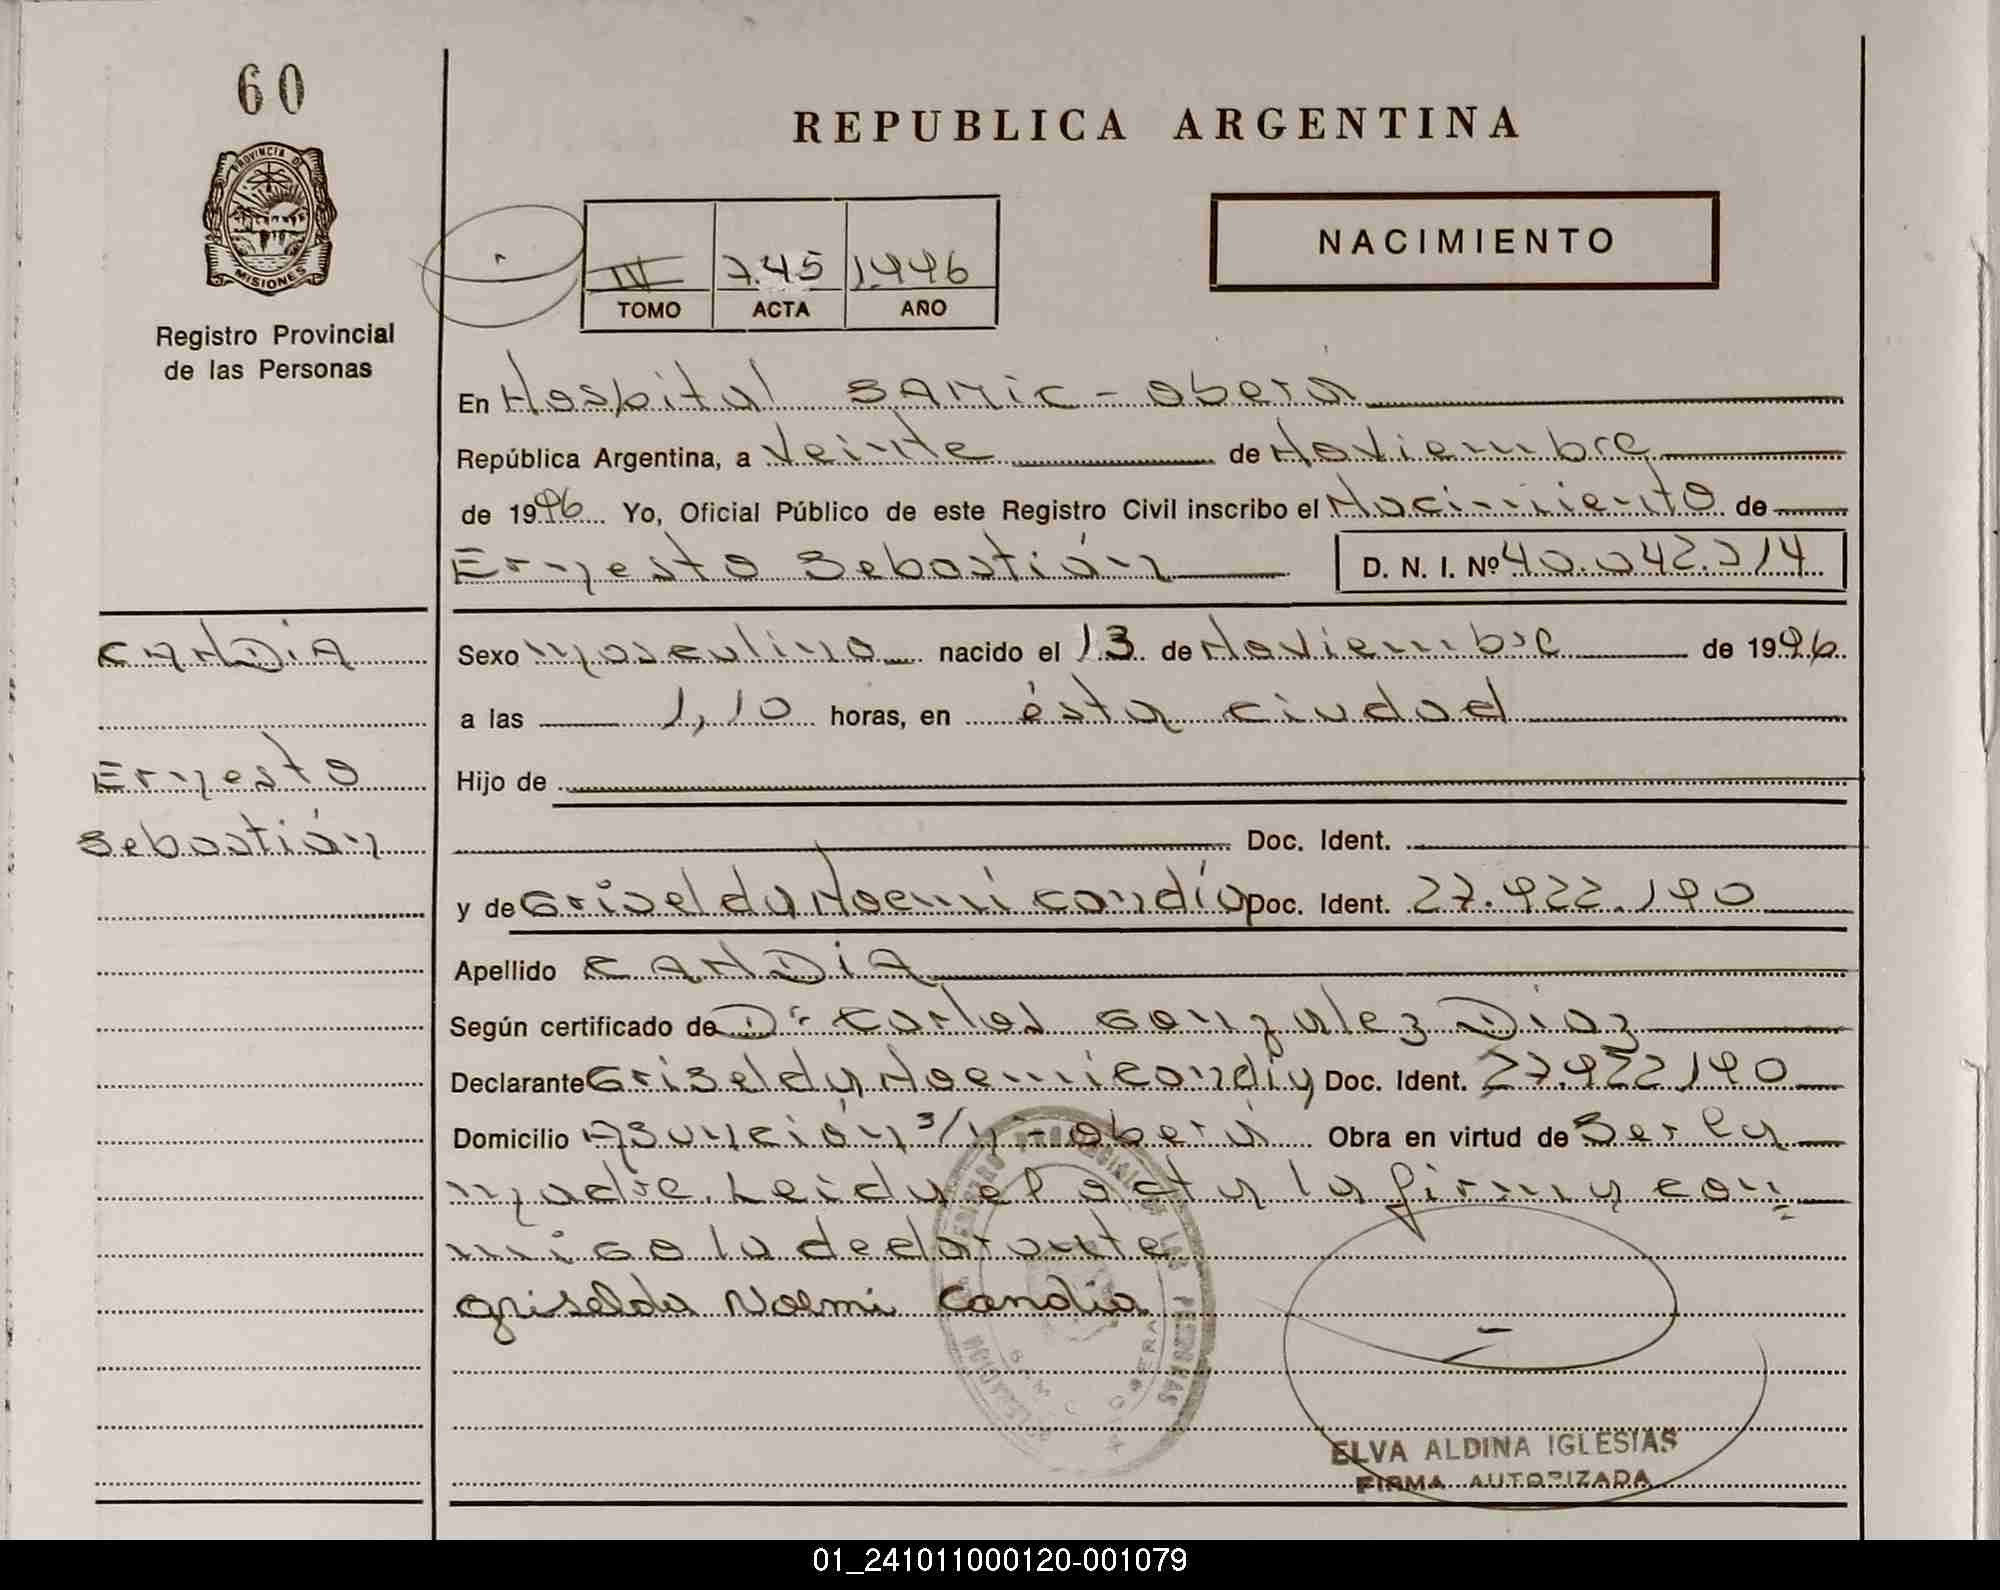 60
PROVINCIA DE
MISIONES
Registro Provincial
de las Personas
REPUBLICA ARGENTINA
NACIMIENTO
III 745 1.996
TOMO ACTA AÑO
En Hospital SAMIC - Oberá
República Argentina, a Veinte de Noviembre
de 1996 Yo, Oficial Público de este Registro Civil inscribo el Nacimiento de
Ernesto Sebastián D. N. I. Nº 40.042.214
CANDIA
Ernesto
Sebastián
Sexo Masculino nacido el 13 de Noviembre de 1996
a las 1,10 horas, en ésta ciudad
Hijo de
Doc. Ident.
y de Griselda Noemí Candia Doc. Ident. 27.922.190
Apellido CANDIA
Según certificado de Dr Carlos Gonzalez Diaz
Declarante Griselda Noemi Candia Doc. Ident. 27.922.190
Domicilio Asunción s/n - Oberá Obra en virtud de Ser la
madre. Leida el acta la firma con=
migo la declarante
Griselda Noemi Candia
ELVA ALDINA IGLESIAS
FIRMA AUTORIZADA
01_241011000120-001079